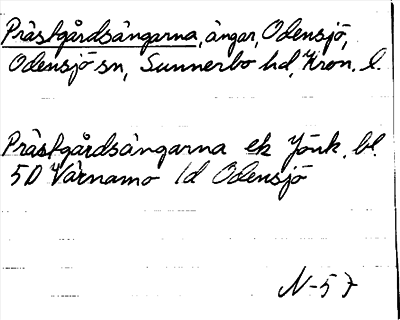 Prästgårdsängarna, ängar, Odensjö,
Odensjö sn, Sunnerbo hd, Kron. l.
Prästgårdsängarna ek Jönk. bl.
5D Värnamo 1d Odensjö
N-57